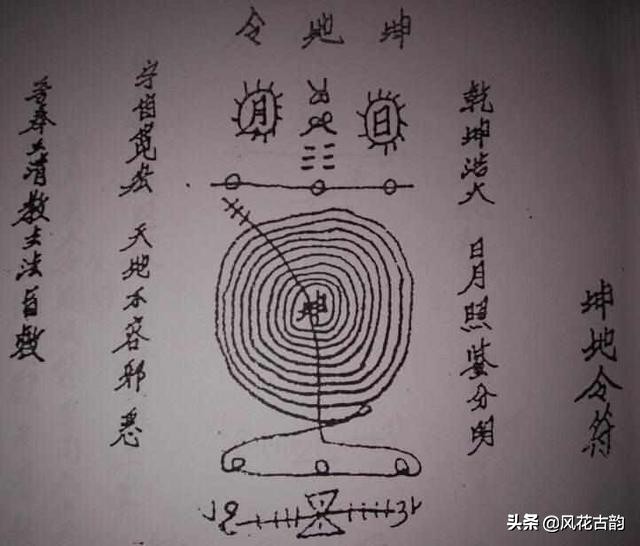 坤地令符
乾坤浩大 日月照鉴分明
坤地令
日
月
坤
宇宙寬宏 天地不容邪恶
吾奉上清教主法旨敕
头条 @风花古韵